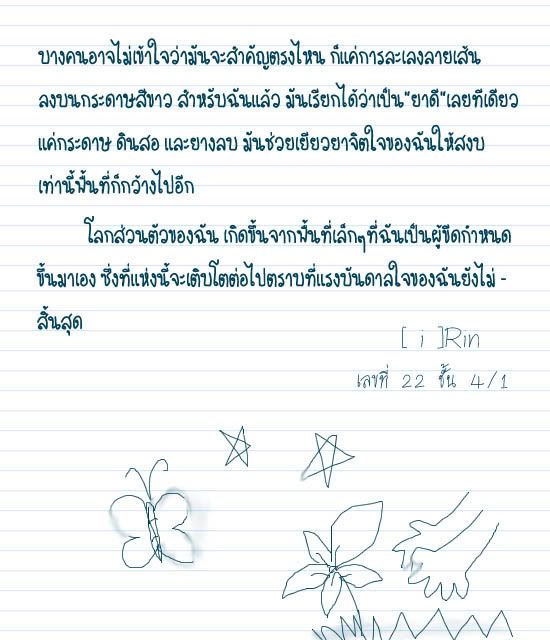 บางคนอาจไม่เข้าใจว่ามันจะสำคัญตรงไหน ก็แค่การละเลงลายเส้น
ลงบนกระดาษสีขาว สำหรับฉันแล้ว มันเรียกได้ว่าเป็น"ยาดี"เลยทีเดียว
แค่กระดาษ ดินสอ และยางลบ มันช่วยเยียวยาจิตใจของฉันให้สงบ
เท่านี้พื้นที่ก็กว้างไปอีก
โลกส่วนตัวของฉัน เกิดขึ้นจากพื้นที่เล็กๆที่ฉันเป็นผู้ขีดกำหนด
ขึ้นมาเอง ซึ่งที่แห่งนี้จะเติบโตต่อไปตราบที่แรงบันดาลใจของฉันยังไม่ -
สิ้นสุด
[ i ]Rin
เลขที่ 22 ชั้น 4/1